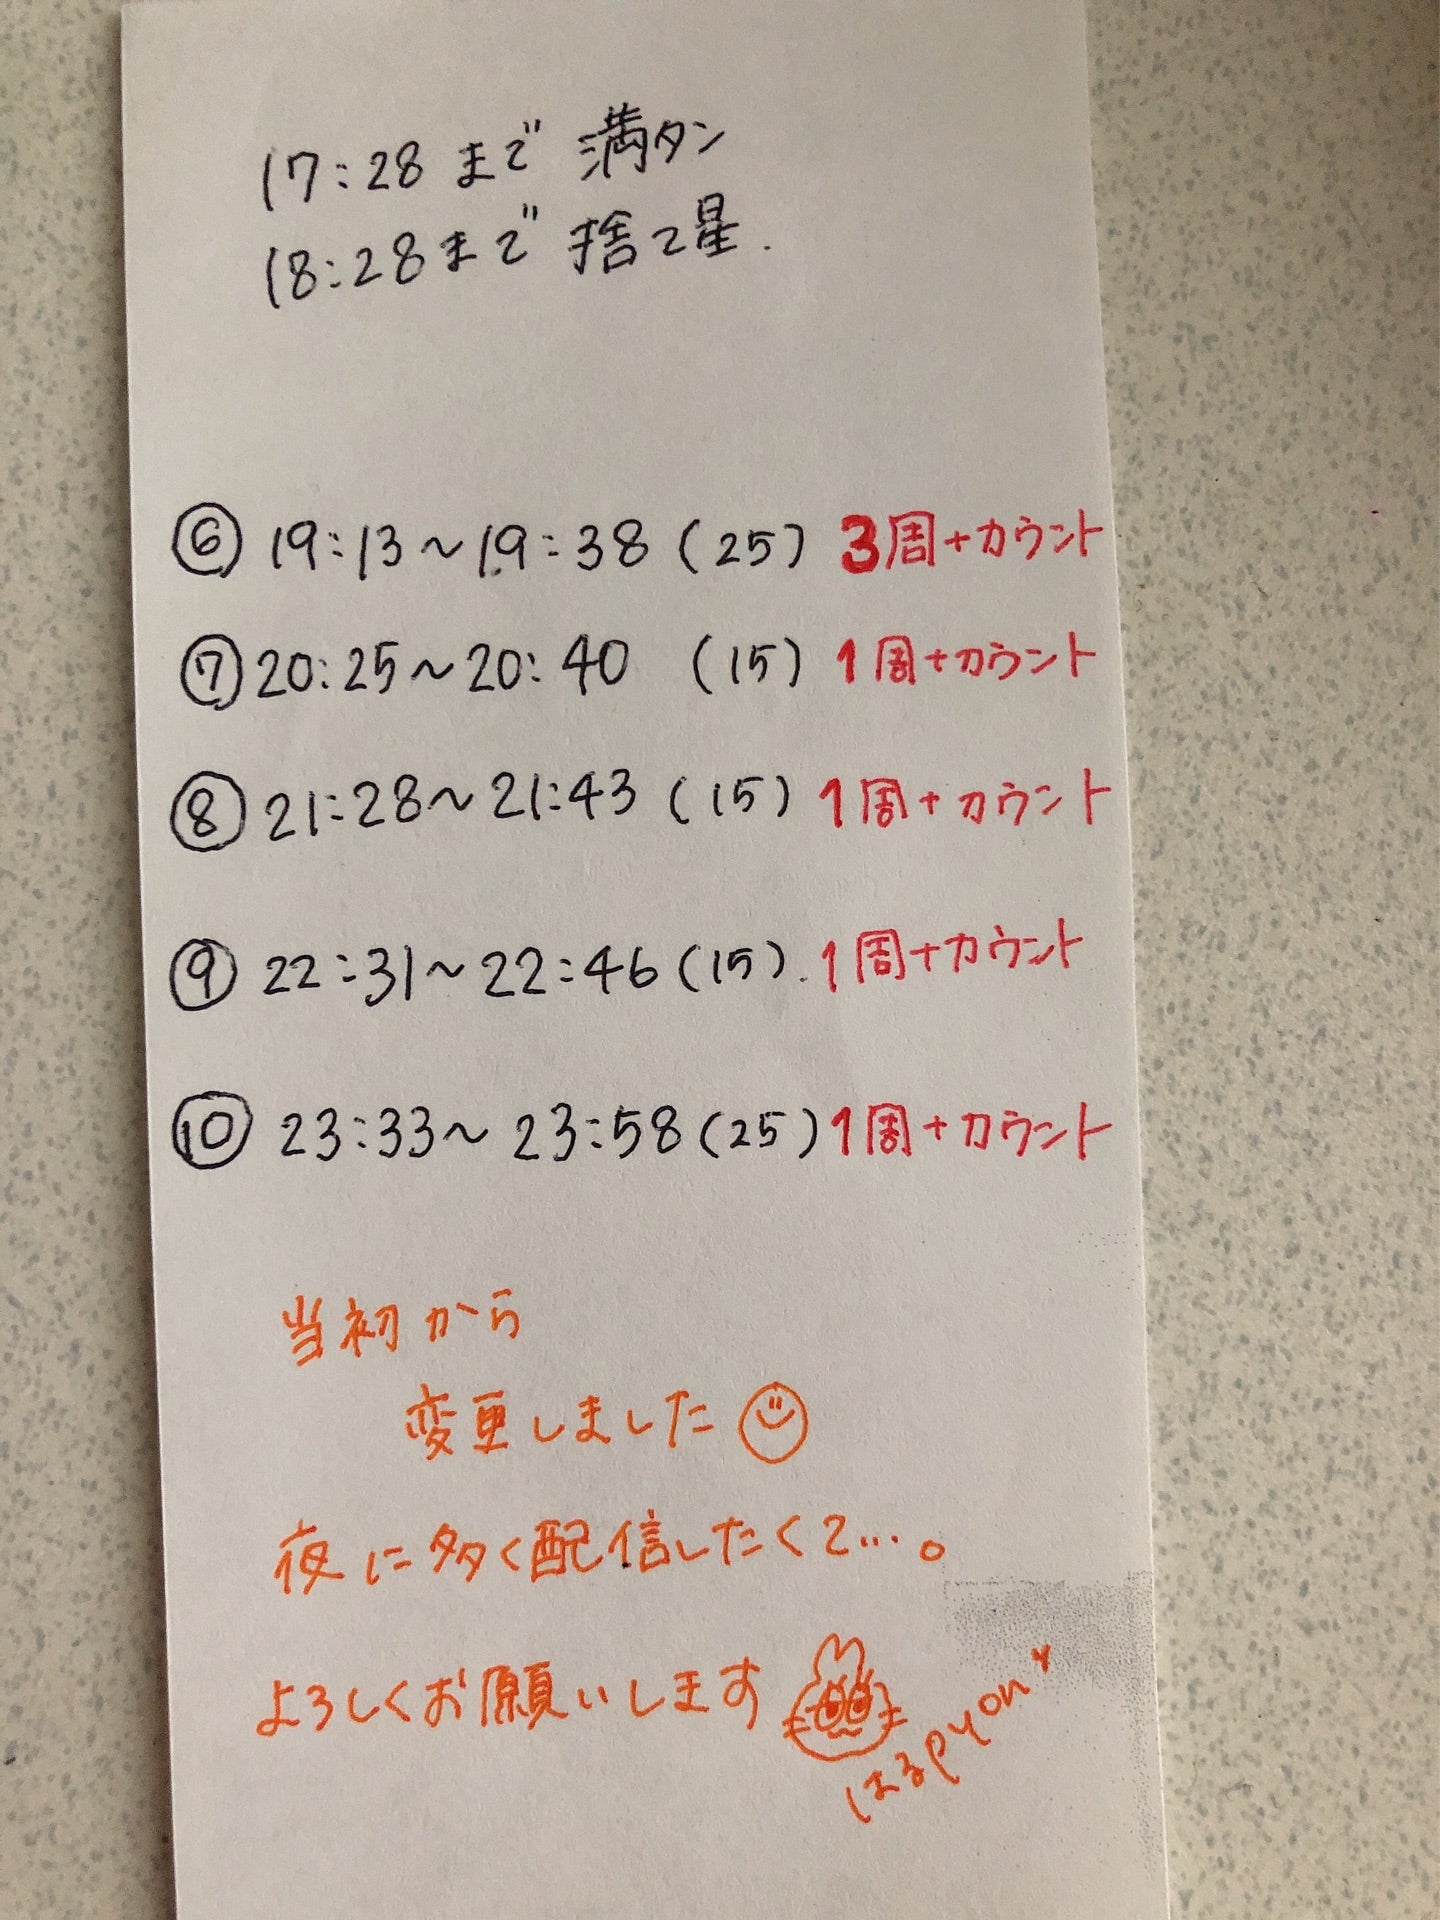 17:28 まで 満タン
18:28まで 捨て星.
⑥ 19:13〜19:38 (25) 3周+カウント
⑦ 20:25〜20:40 (15) 1周+カウント
⑧ 21:28〜21:43 (15) 1周+カウント
⑨ 22:31〜22:46 (15). 1周+カウント
⑩ 23:33〜23:58 (25) 1周+カウント
当初から
変更しました
夜に多く配信したくて…。
よろしくお願いします
はるpyon